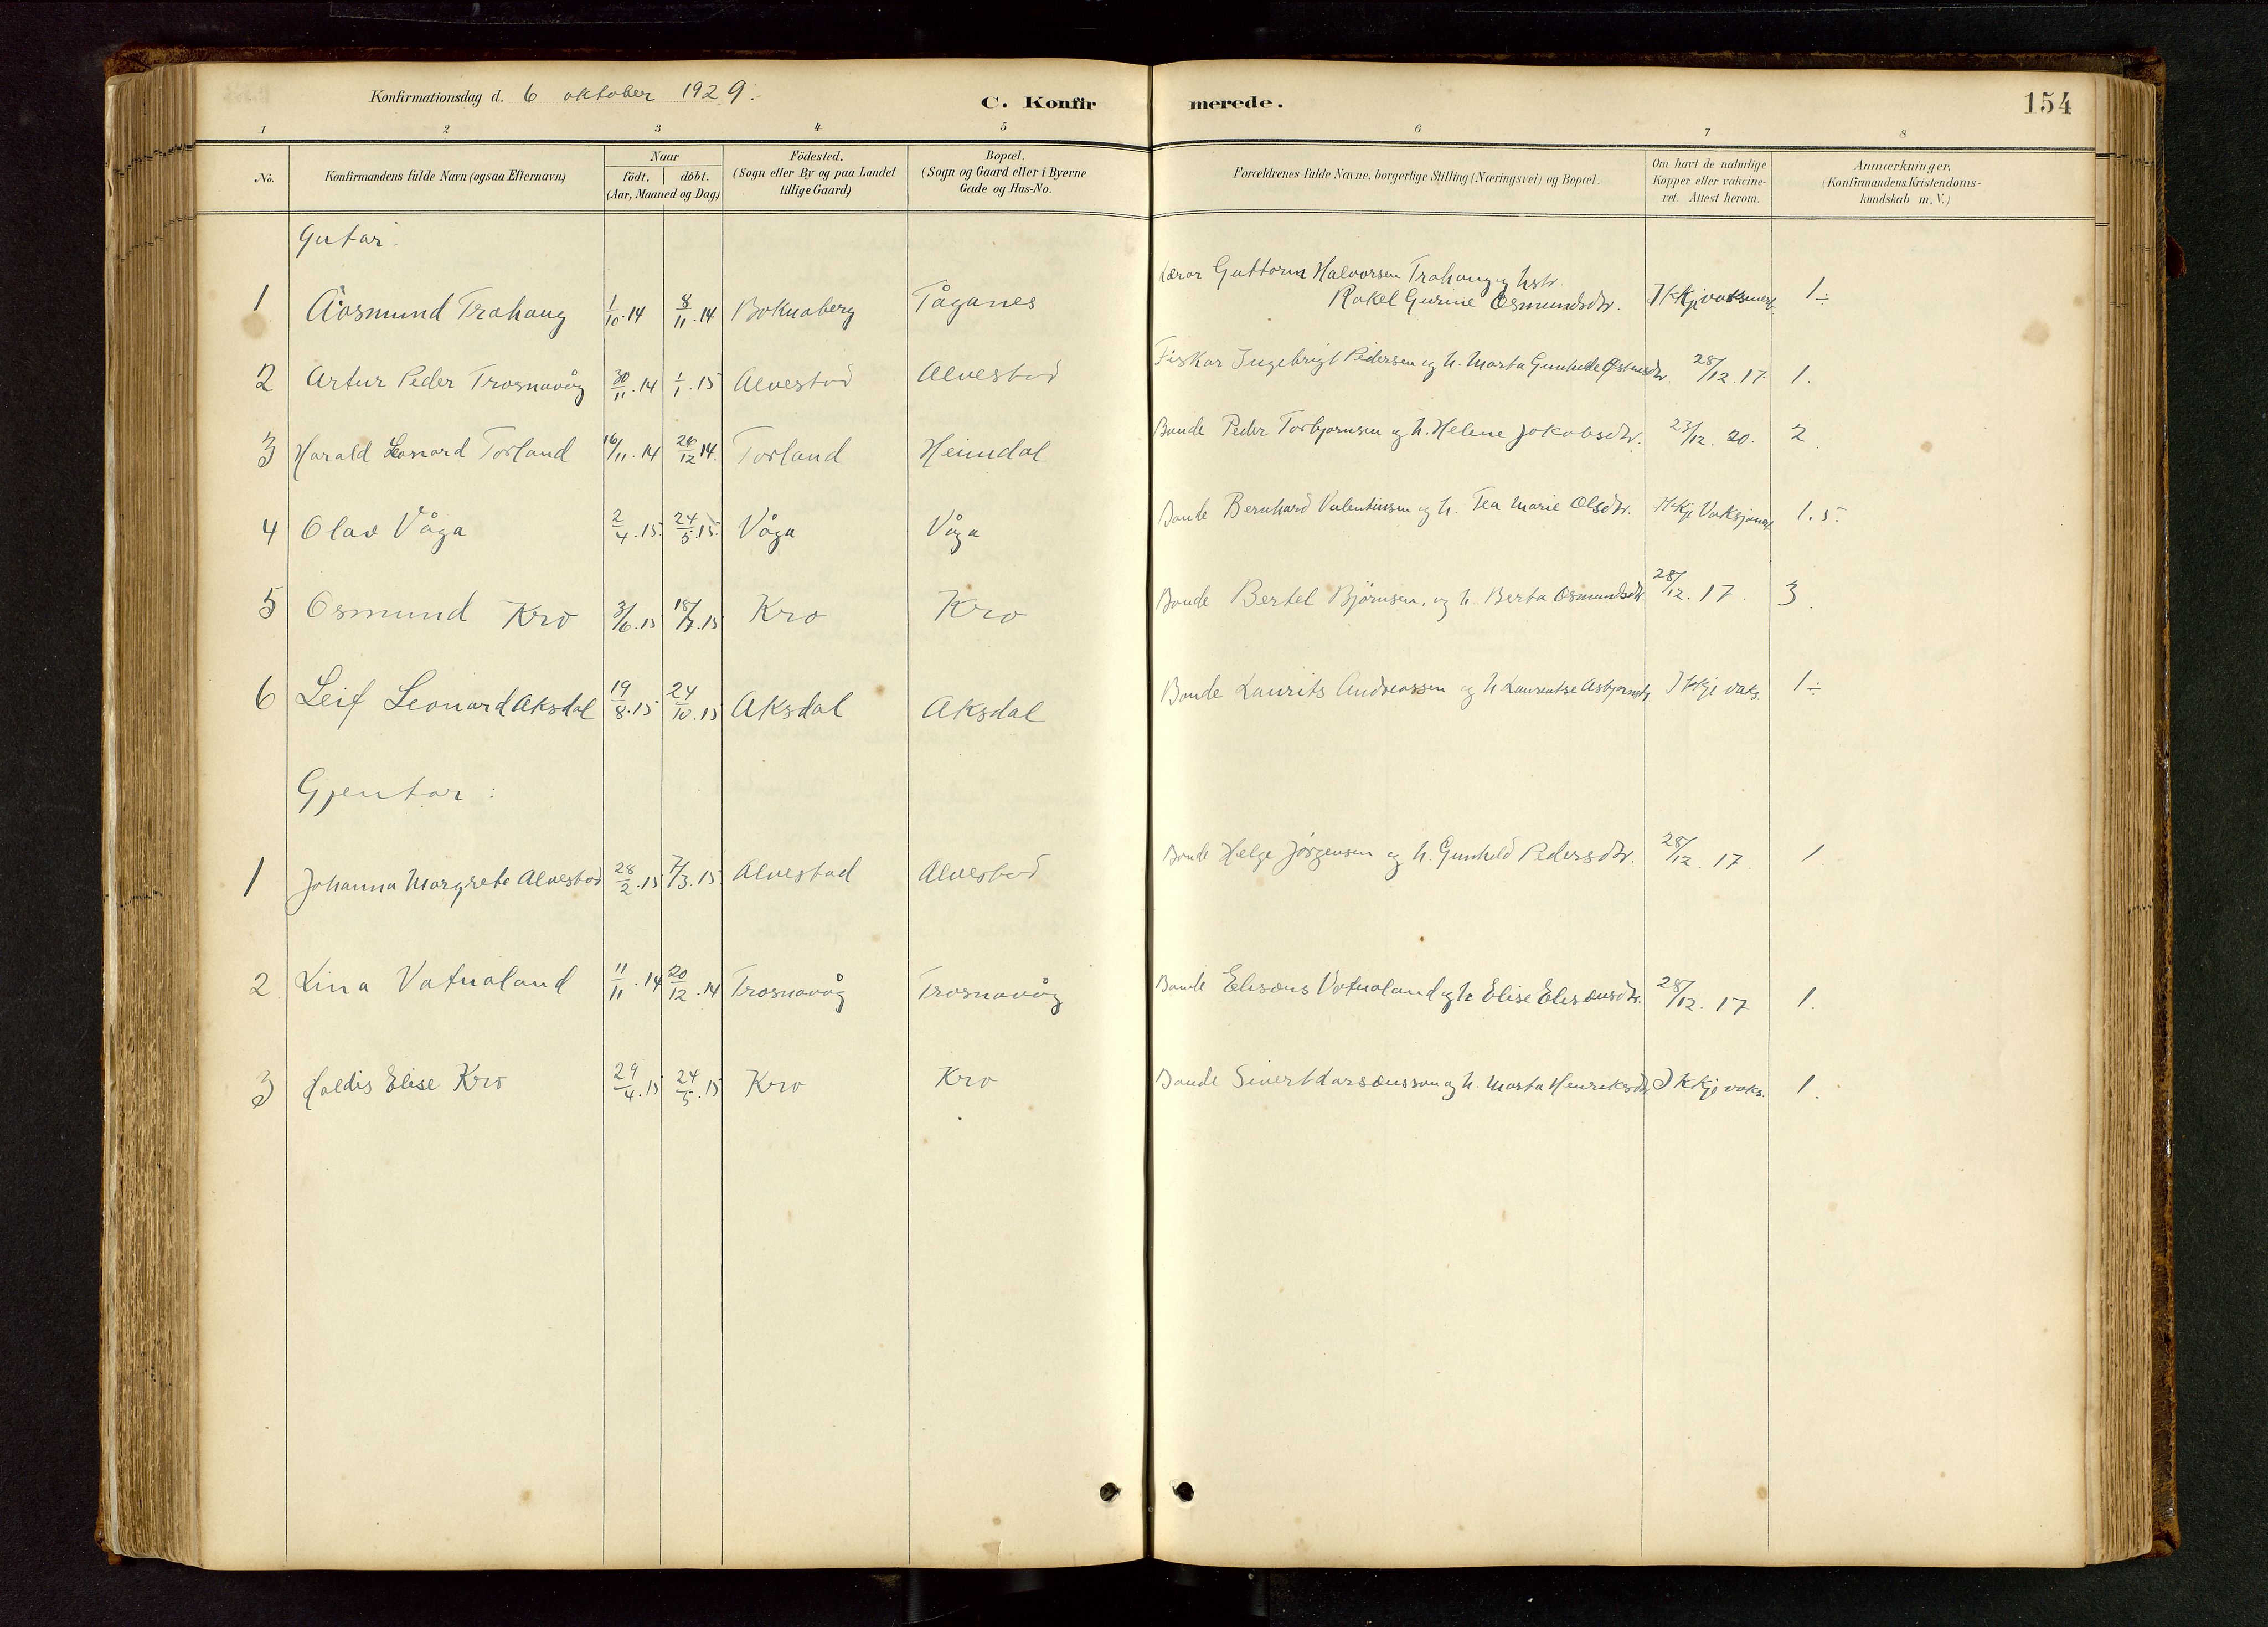 Konfirmationsdag d. 6 oktober 1929.
C. Konfirmerede.
154
1 2 3 4 5 6 7 8
No.
Konfirmandens fulde Navn (ogsaa Efternavn)
Naar födt. döbt. (Aar, Maaned og Dag)
Födested. (Sogn eller By og paa Landet tillige Gaard)
Bopæl. (Sogn og Gaard eller i Byerne Gade og Hus-No.
Forældrenes fulde Navne, borgerlige Stilling (Næringsvei) og Bopæl.
Om havt de naturlige Kopper eller vakcineret. Attest herom.
Anmærkninger, (Konfirmandens Kristendomskundskab m. V.)
Gutar
1 Åosmund Træhaug 1/10.14 8/11.14 Boknaberg Tåganes Lærar Guttorm Halvorsen Træhaug og hstr. Rakel Gurine Osmundsdtr. Ikkje vaksinert 1÷
2 Artur Peder Trosnavåg 30/11.14 1/1.15 Alvestad Alvestad Fiskar Ingebrigt Pedersen og h. Marta Gunhilde 28/12.17. 1.
3 Harald Leonard Torland 16/11.14 26/12 14. Torland Heimdal Bonde Peder Torbjørnsen og h. Helene Jakobsdtr. 23/12. 20. 2.
4 Olav Våga 2/4.15. 24/5.15. Våga Våga Bonde Bernhard Valentinsen og h. Tea Marie Olsdtr. Ikkje Vaksjonert 1.5.
5 Osmund Kro 3/6.15 18/7.15 Kro Kro Bonde Bertel Bjørnsen. og h. Berta Osmundsdtr. 28/12. 17. 3.
6 Leif Leonard Aksdal 19/8.15 24/10.15 Aksdal Aksdal Bonde Laurits Andreassen og h. Laurentse Asbjørnsdtr. Ikkje vaks. 1÷
Gjentar:
1 Johanna Margrete Alvestad 28/2.15 7/3.15. Alvestad Alvestad Bonde Helge Jørgensen og h. Gunhild Pedersdtr. 28/12. 17 1.
2 Lina Vatnaland 11/11.14 20/12.14 Trosnavåg Trosnavåg Bonde Elisæus Vatnaland og h. Elise Elisæusdtr. 28/12. 17 1.
3 Haldis Elise Kro 29/4.15 24/5.15 Kro Kro Bonde Sivert Larsænsson og h. Marta Henriksdtr. Ikkje vaks. 1.